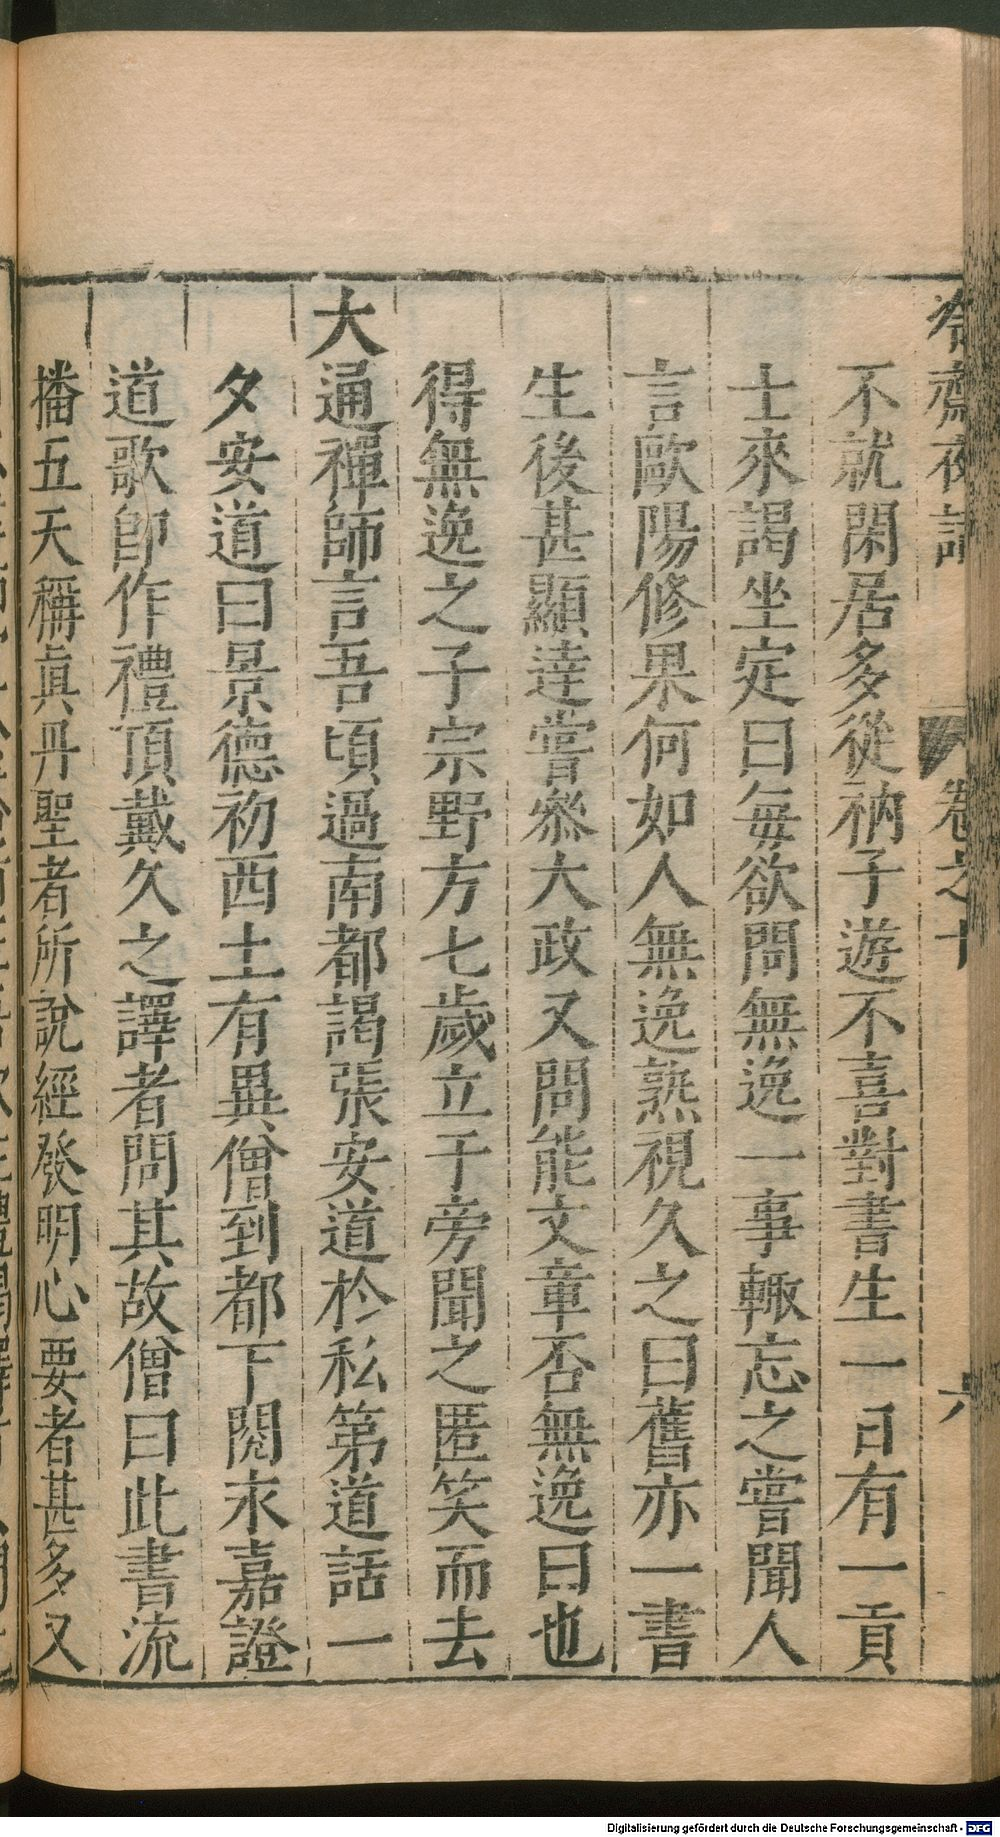 冷齋夜話 卷之十 六
不就閑居多從衲子遊不喜對書生一日有一貢
士來謁坐定曰每欲問無逸一事輙忘之嘗聞人
言歐陽修果何如人無逸熟視久之曰舊亦一書
生後甚顯達嘗叅大政又問能文章否無逸曰也
得無逸之子宗野方七歲立于旁聞之匿笑而去
大通禪師言吾頃過南都謁張安道於私第道話一
夕安道曰景德初西土有異僧到都下閱永嘉證
道歌即作禮頂戴久之譯者問其故僧曰此書流
播五天稱眞丹聖者所說經發明心要者甚多又
Digitalisierung gefördert durch die Deutsche Forschungsgemeinschaft - DFG